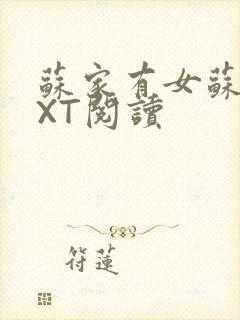 蘇家有女蘇
XT閱讀
符蓮